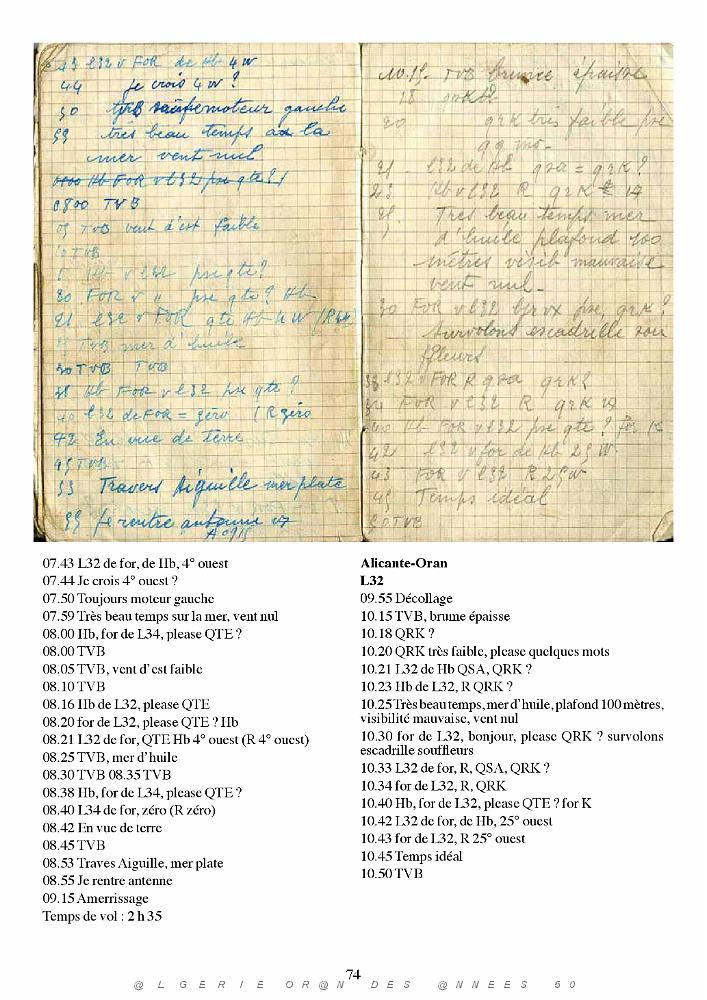 43 l32 v FOR de Hb 4 W
44 je crois 4 W ?
50 TVB moteur gauche
59 très beau temps la
mer vent nul
Hb FOR v l32 pse qte ?
0800 TVB
05 TVB vent d'est faible
10 TVB
Hb v l32 pse qte ?
20 FOR v " pse qte ? Hb
21 l32 v FOR qte Hb 4 W (R 4W)
TVB mer d'huile
30 TVB TVB
38 Hb FOR v l32 pse qte ?
40 l32 de FOR = zéro (R zéro
42 En vue de terre
45 TVB
53 Travers Aiguille mer plate
55 Je rentre antenne
A 0915
10.15. TVB brume épaisse
18 qrk
20 qrk très faible pse
qq mo-
21. l32 de Hb qsa = qrK ?
23 Hb v l32 R qrK
25. Tres beau temps mer
d'huile plafond 100
mètres visib mauvaise
vent nul-
30 FOR v l32 bjr vx pse, qrK ?
Survolons escadrille sou
fleurs
33 l32 v FOR R qsa qrK ?
34 FOR v l32 R qrK
40 Hb FOR v l32 pse qte ? for K
42 l32 v for de Hb 25 W.
43 FOR v l32 R 25 W
45 Temps idéal
50 TVB
07.43 L32 de for, de Hb, 4° ouest
07.44 Je crois 4° ouest ?
07.50 Toujours moteur gauche
07.59 Très beau temps sur la mer, vent nul
08.00 Hb, for de L34, please QTE ?
08.00 TVB
08.05 TVB, vent d'est faible
08.10 TVB
08.16 Hb de L32, please QTE
08.20 for de L32, please QTE ? Hb
08.21 L32 de for, QTE Hb 4° ouest (R 4° ouest)
08.25 TVB, mer d'huile
08.30 TVB 08.35 TVB
08.38 Hb, for de L34, please QTE ?
08.40 L34 de for, zéro (R zéro)
08.42 En vue de terre
08.45 TVB
08.53 Traves Aiguille, mer plate
08.55 Je rentre antenne
09.15 Amerrissage
Temps de vol : 2 h 35
Alicante-Oran
L32
09.55 Décollage
10.15 TVB, brume épaisse
10.18 QRK ?
10.20 QRK très faible, please quelques mots
10.21 L32 de Hb QSA, QRK ?
10.23 Hb de L32, R QRK ?
10.25 Très beau temps, mer d'huile, plafond 100 mètres,
visibilité mauvaise, vent nul
10.30 for de L32, bonjour, please QRK ? survolons
escadrille souffleurs
10.33 L32 de for, R, QSA, QRK ?
10.34 for de L32, R, QRK
10.40 Hb, for de L32, please QTE ? for K
10.42 L32 de for, de Hb, 25° ouest
10.43 for de L32, R 25° ouest
10.45 Temps idéal
10.50 TVB
74
@ L G E R I E O R @ N D E S @ N N E E S 5 0